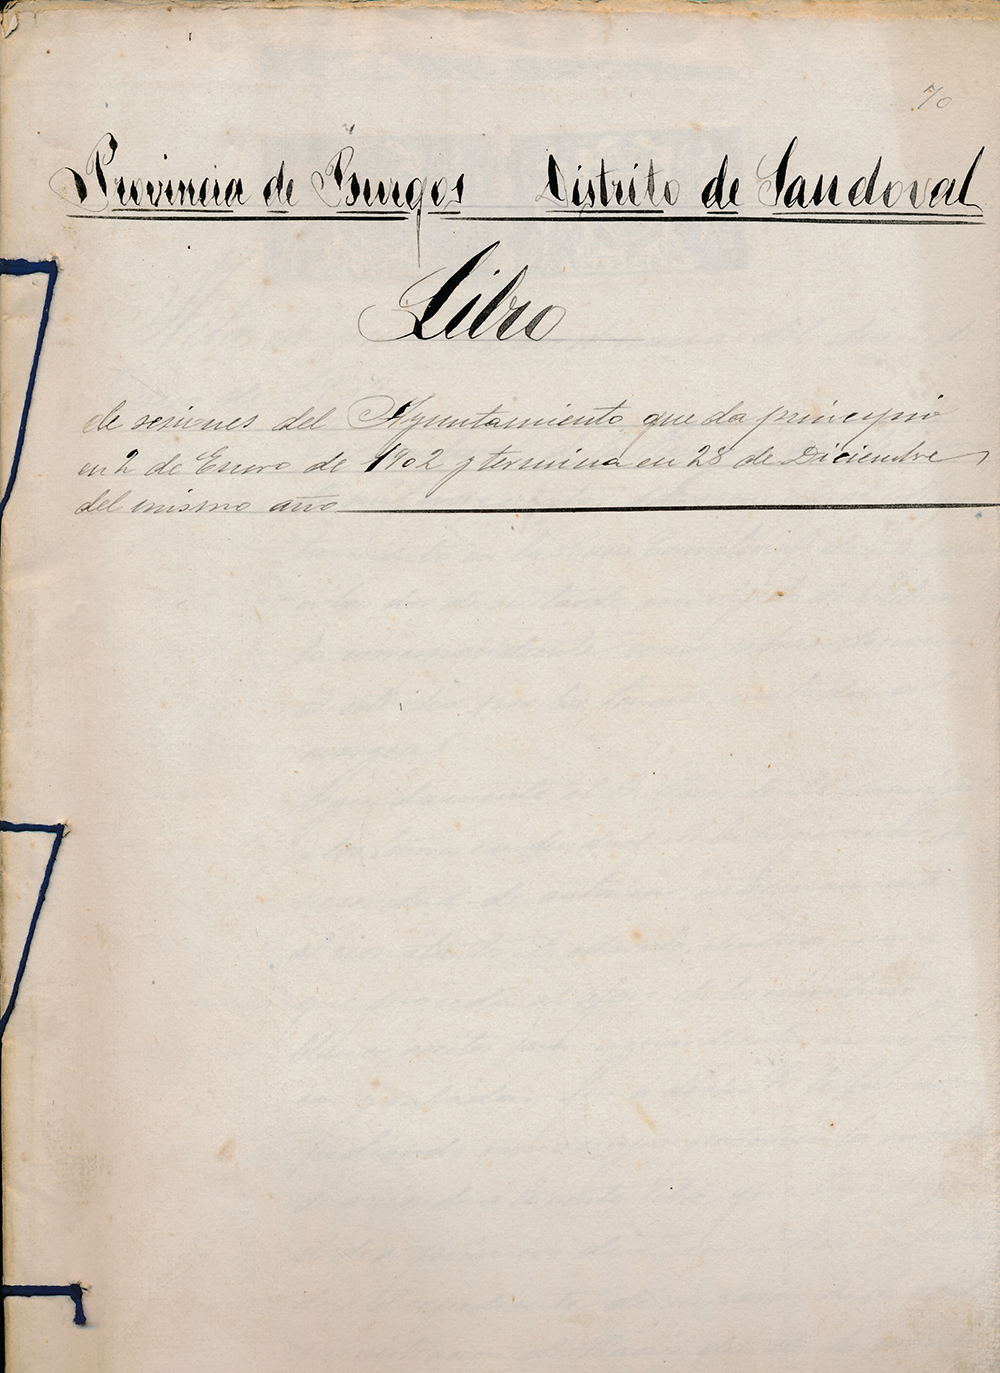 70
Provincia de Burgos Distrito de Sandoval
Libro
de sesiones del Ayuntamiento que da principio
en 2 de Enero de 1902 y termina en 28 de Diciembre
del mismo año